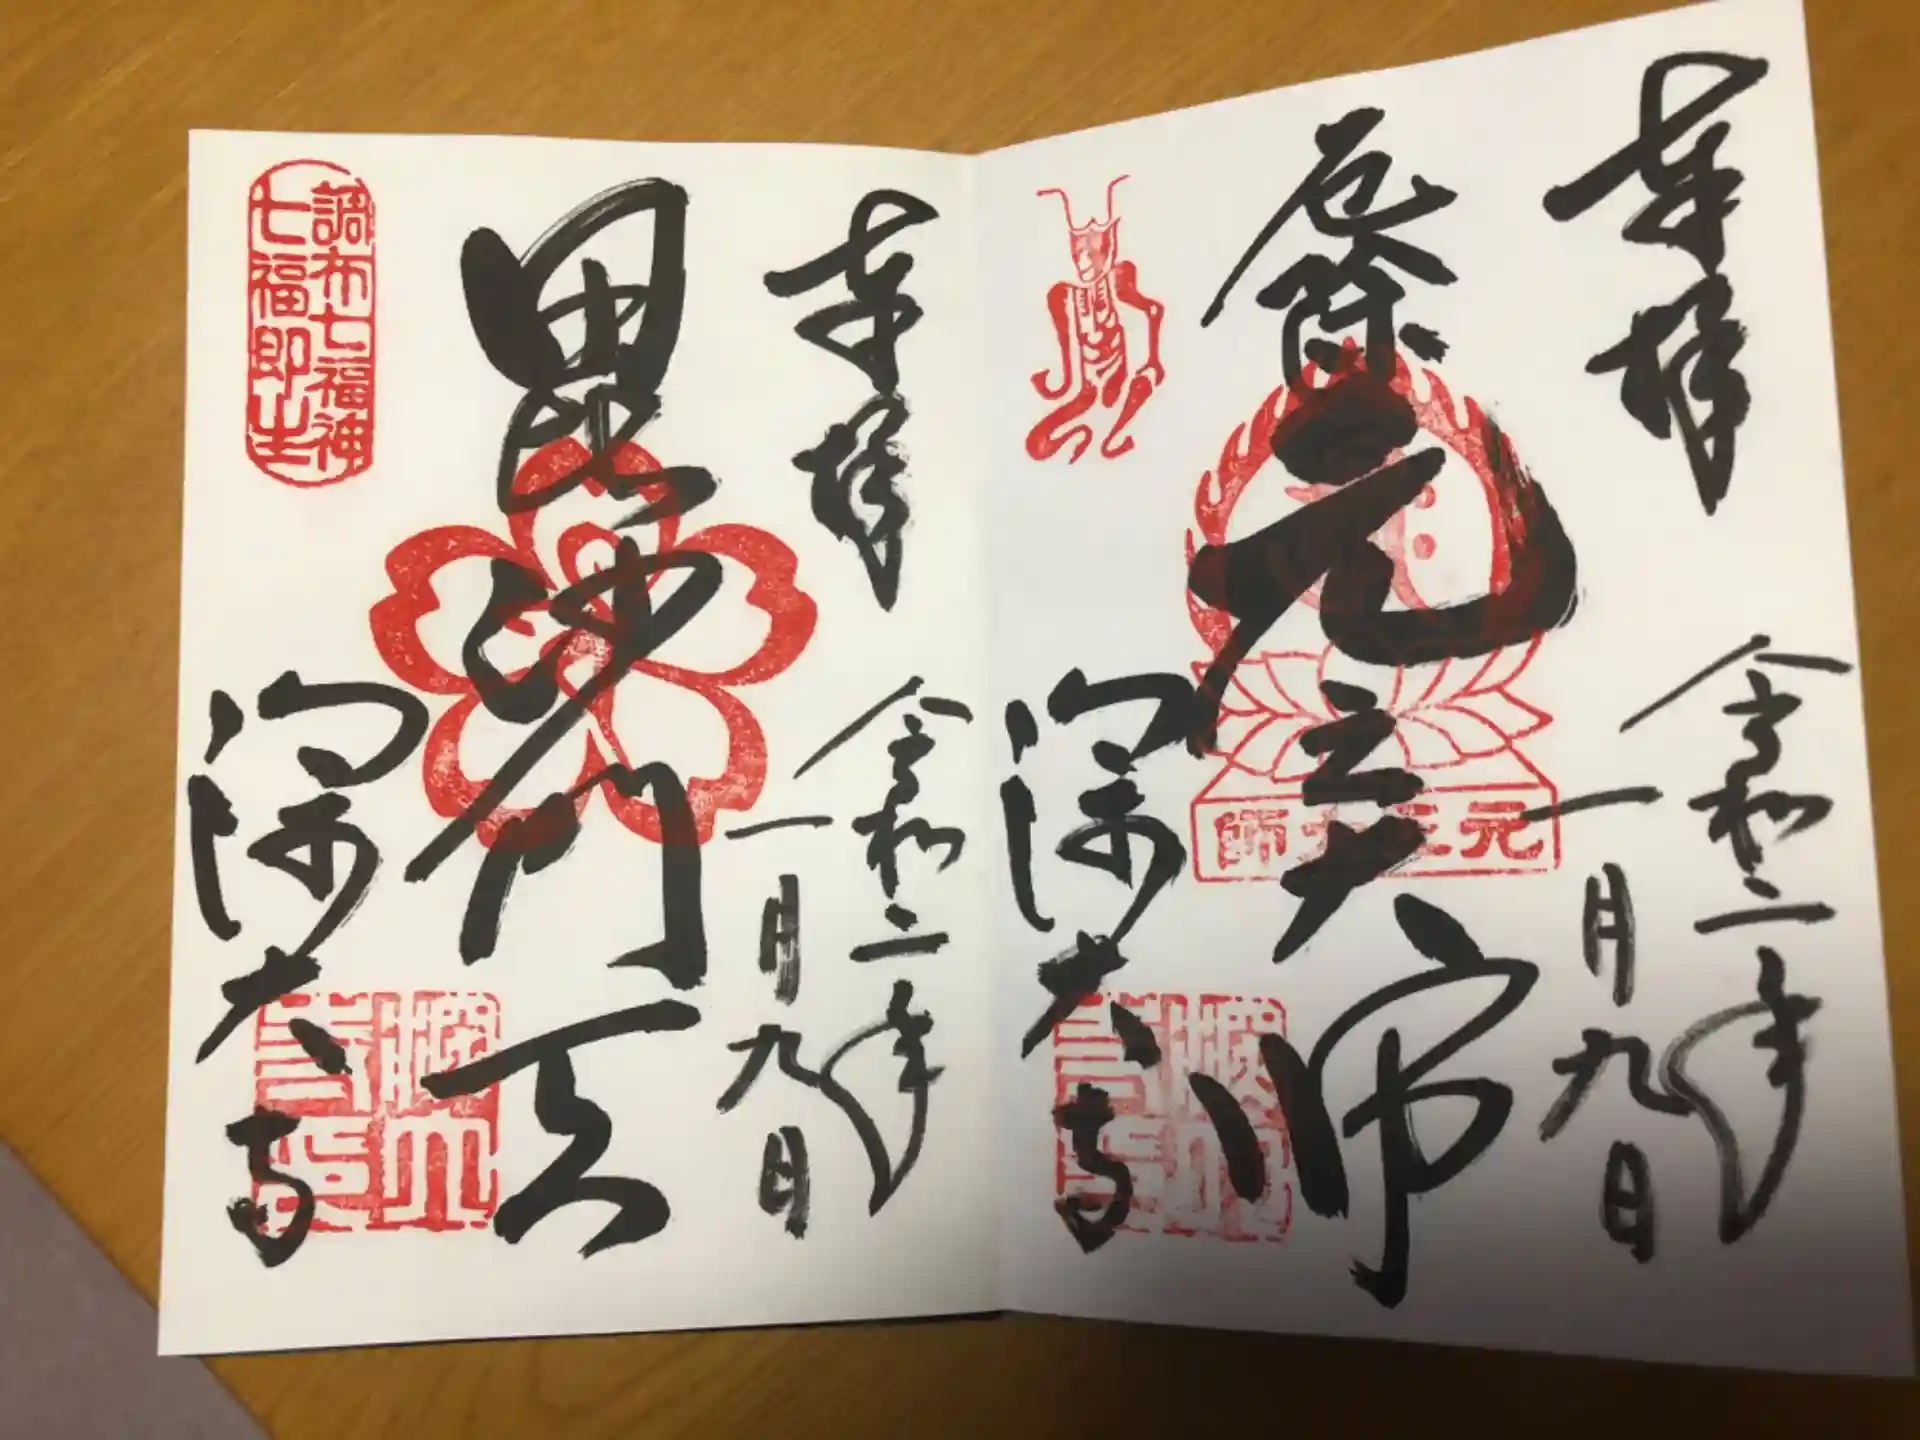 奉拝
令和二年
一月九日
厄除元三大師
元三大師
深大寺
奉拝
令和二年
一月九日
毘沙門天
深大寺
調布七福神
七福即生